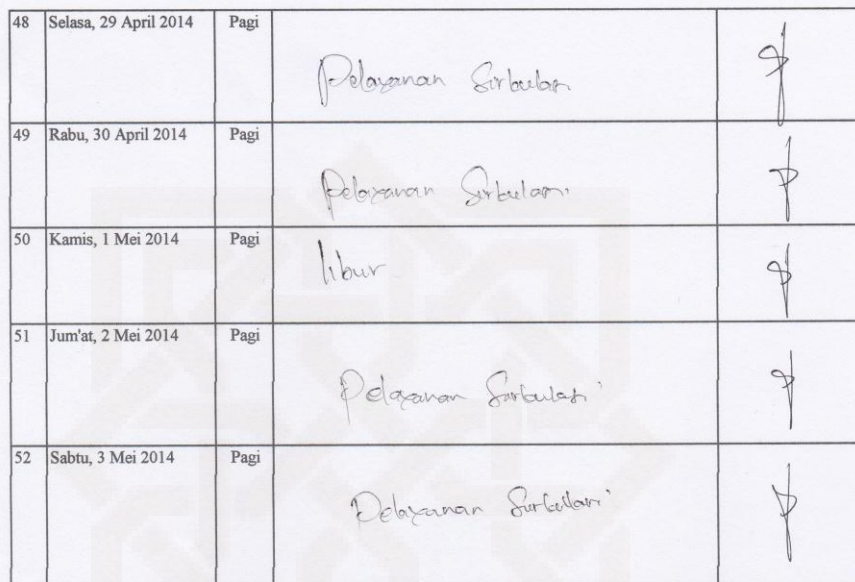 48 Selasa, 29 April 2014 Pagi Pelayanan Sirkulasi
49 Rabu, 30 April 2014 Pagi Pelayanan Sirkulasi
50 Kamis, 1 Mei 2014 Pagi libur
51 Jum'at, 2 Mei 2014 Pagi Pelayanan Sirkulasi
52 Sabtu, 3 Mei 2014 Pagi Pelayanan Sirkulasi